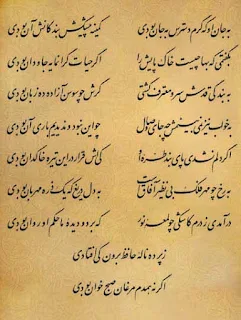 به جان او که گرم دسترس به جان بودی کمینه پیشکش بندگانش آن بودی
بگفتمی که بها چیست خاک پایش را اگر حیات گرانمایه جاودان بودی
به بندگی قدش سرو معترف گشتی گرش چو سوسن آزاده ده زبان بودی
به خواب نیز نمی‌بینمش چه جای وصال چو این نبود و ندیدیم باری آن بودی
اگر دلم نشدی پای‌بند طره او کی‌اش قرار در این تیره خاکدان بودی
به رخ چو مهر فلک بی‌نظیر آفاق است به دل دریغ که یک ذره مهربان بودی
درآمدی ز درم کاشکی چو لمعه نور که بر دو دیده ما حکم او روان بودی
ز پرده ناله حافظ برون کی افتادی
اگر نه همدم مرغان صبح خوان بودی